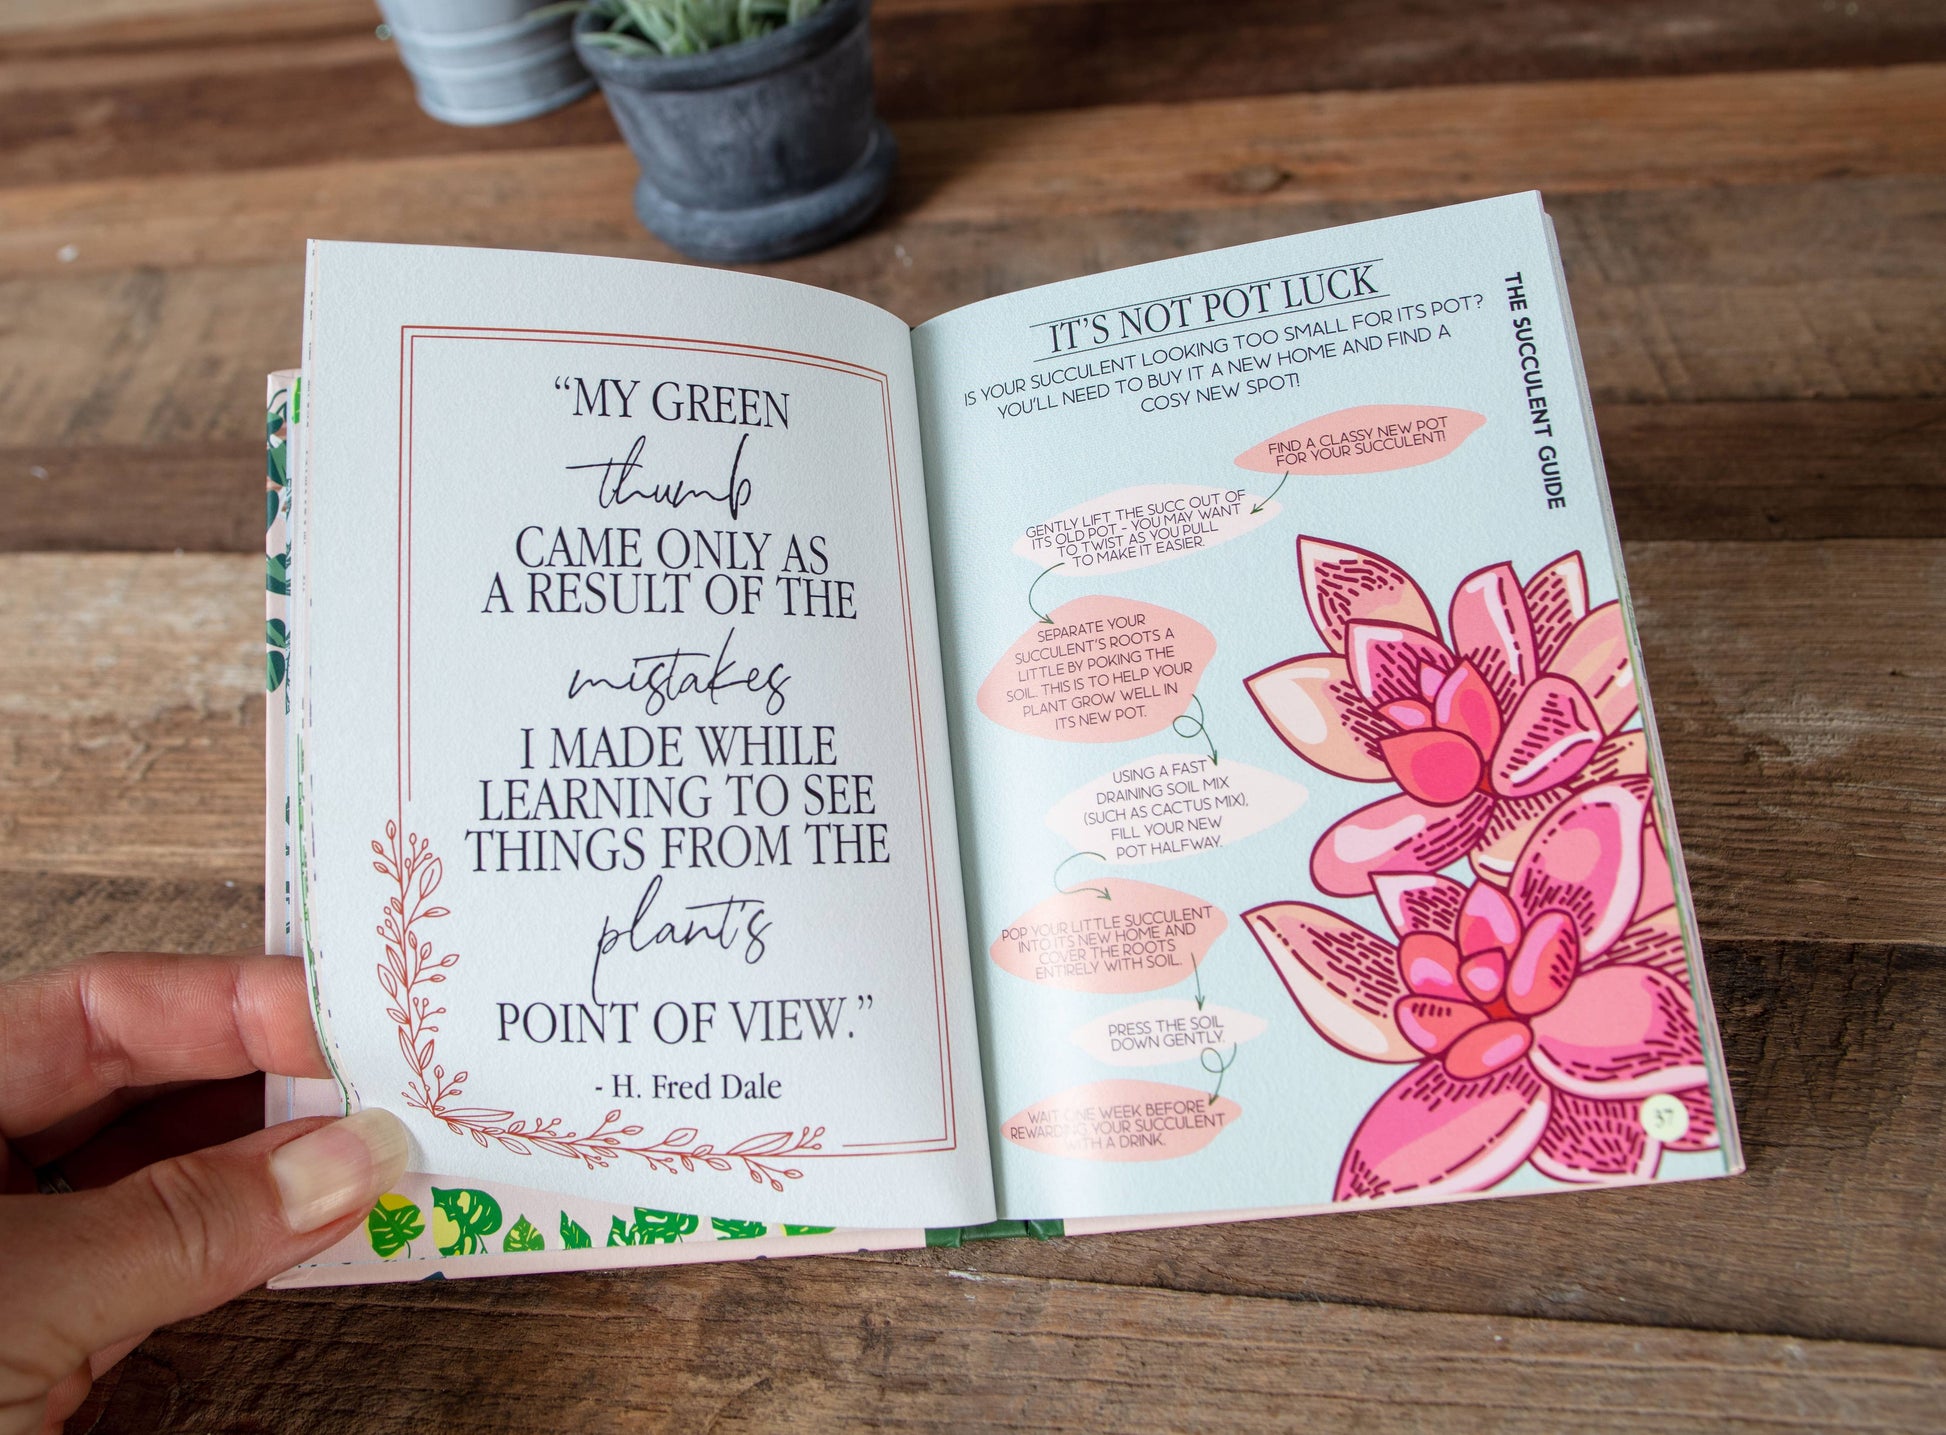 “MY GREEN
thumb
CAME ONLY AS
A RESULT OF THE
mistakes
I MADE WHILE
LEARNING TO SEE
THINGS FROM THE
plant's
POINT OF VIEW.”
- H. Fred Dale
IT'S NOT POT LUCK
IS YOUR SUCCULENT LOOKING TOO SMALL FOR ITS POT?
YOU'LL NEED TO BUY IT A NEW HOME AND FIND A
COSY NEW SPOT!
FIND A CLASSY NEW POT
FOR YOUR SUCCULENT!
GENTLY LIFT THE SUCC OUT OF
ITS OLD POT - YOU MAY WANT
TO TWIST AS YOU PULL
TO MAKE IT EASIER.
SEPARATE YOUR
SUCCULENT'S ROOTS A
LITTLE BY POKING THE
SOIL. THIS IS TO HELP YOUR
PLANT GROW WELL IN
ITS NEW POT.
USING A FAST
DRAINING SOIL MIX
(SUCH AS CACTUS MIX),
FILL YOUR NEW
POT HALFWAY.
POP YOUR LITTLE SUCCULENT
INTO ITS NEW HOME AND
COVER THE ROOTS
ENTIRELY WITH SOIL.
PRESS THE SOIL
DOWN GENTLY.
WAIT ONE WEEK BEFORE
REWARDING YOUR SUCCULENT
WITH A DRINK.
THE SUCCULENT GUIDE
37